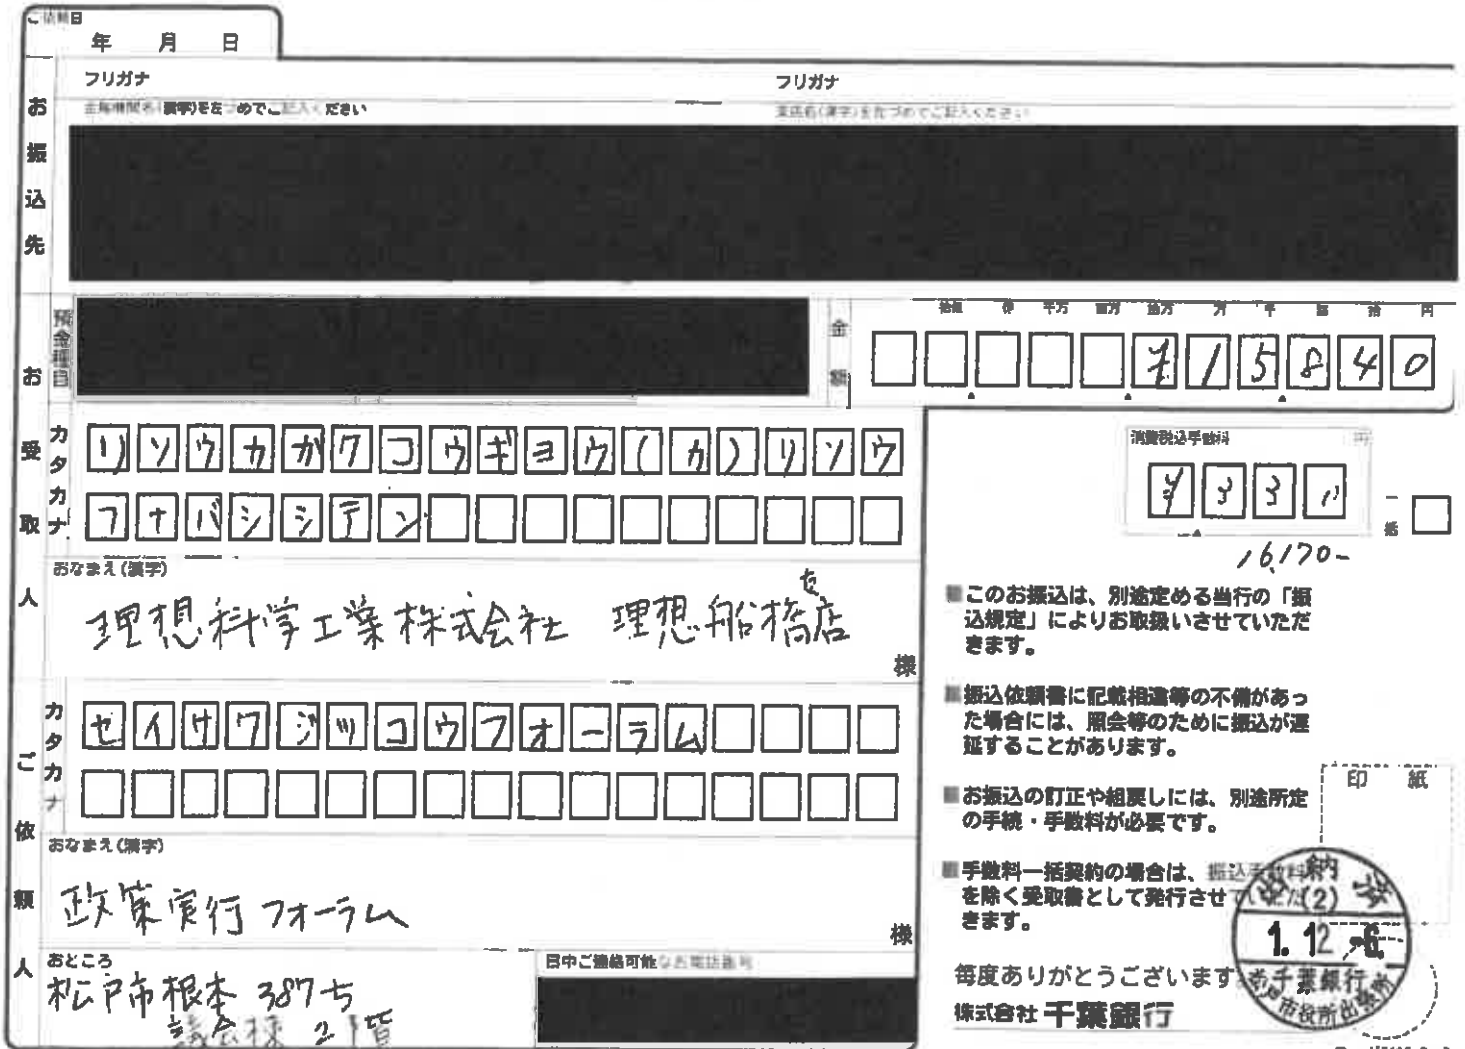 ご依頼日
年 月 日
お振込先
フリガナ
フリガナ
金融機関名(漢字)を左づめでご記入ください
支店名(漢字)を左づめでご記入ください
お受取人
預金種目
金額
拾億 億 千万 百万 拾万 万 千 百 拾 円
¥15840
カタカナ
リソウカガクコウギョウ(カ)リソウ
フナバシシテン
消費税込手数料 円
¥330
一括
16,170-
おなまえ(漢字)
理想科学工業株式会社 理想船橋支店
様
ご依頼人
カタカナ
セイサクジツコウフオーラム
おなまえ(漢字)
政策実行フォーラム
様
おところ
松戸市根本387-5
議会棟2階
日中ご連絡可能なお電話番号
■このお振込は、別途定める当行の「振
込規定」によりお取扱いさせていただ
きます。
■振込依頼書に記載相違等の不備があっ
た場合には、照会等のために振込が遅
延することがあります。
■お振込の訂正や組戻しには、別途所定
の手続・手数料が必要です。
■手数料一括契約の場合は、振込手数料
を除く受取書として発行させていただ
きます。
毎度ありがとうございます
株式会社 千葉銀行
印 紙
出納済
(2)
1.12.-6.
千葉銀行
松戸市役所出張所